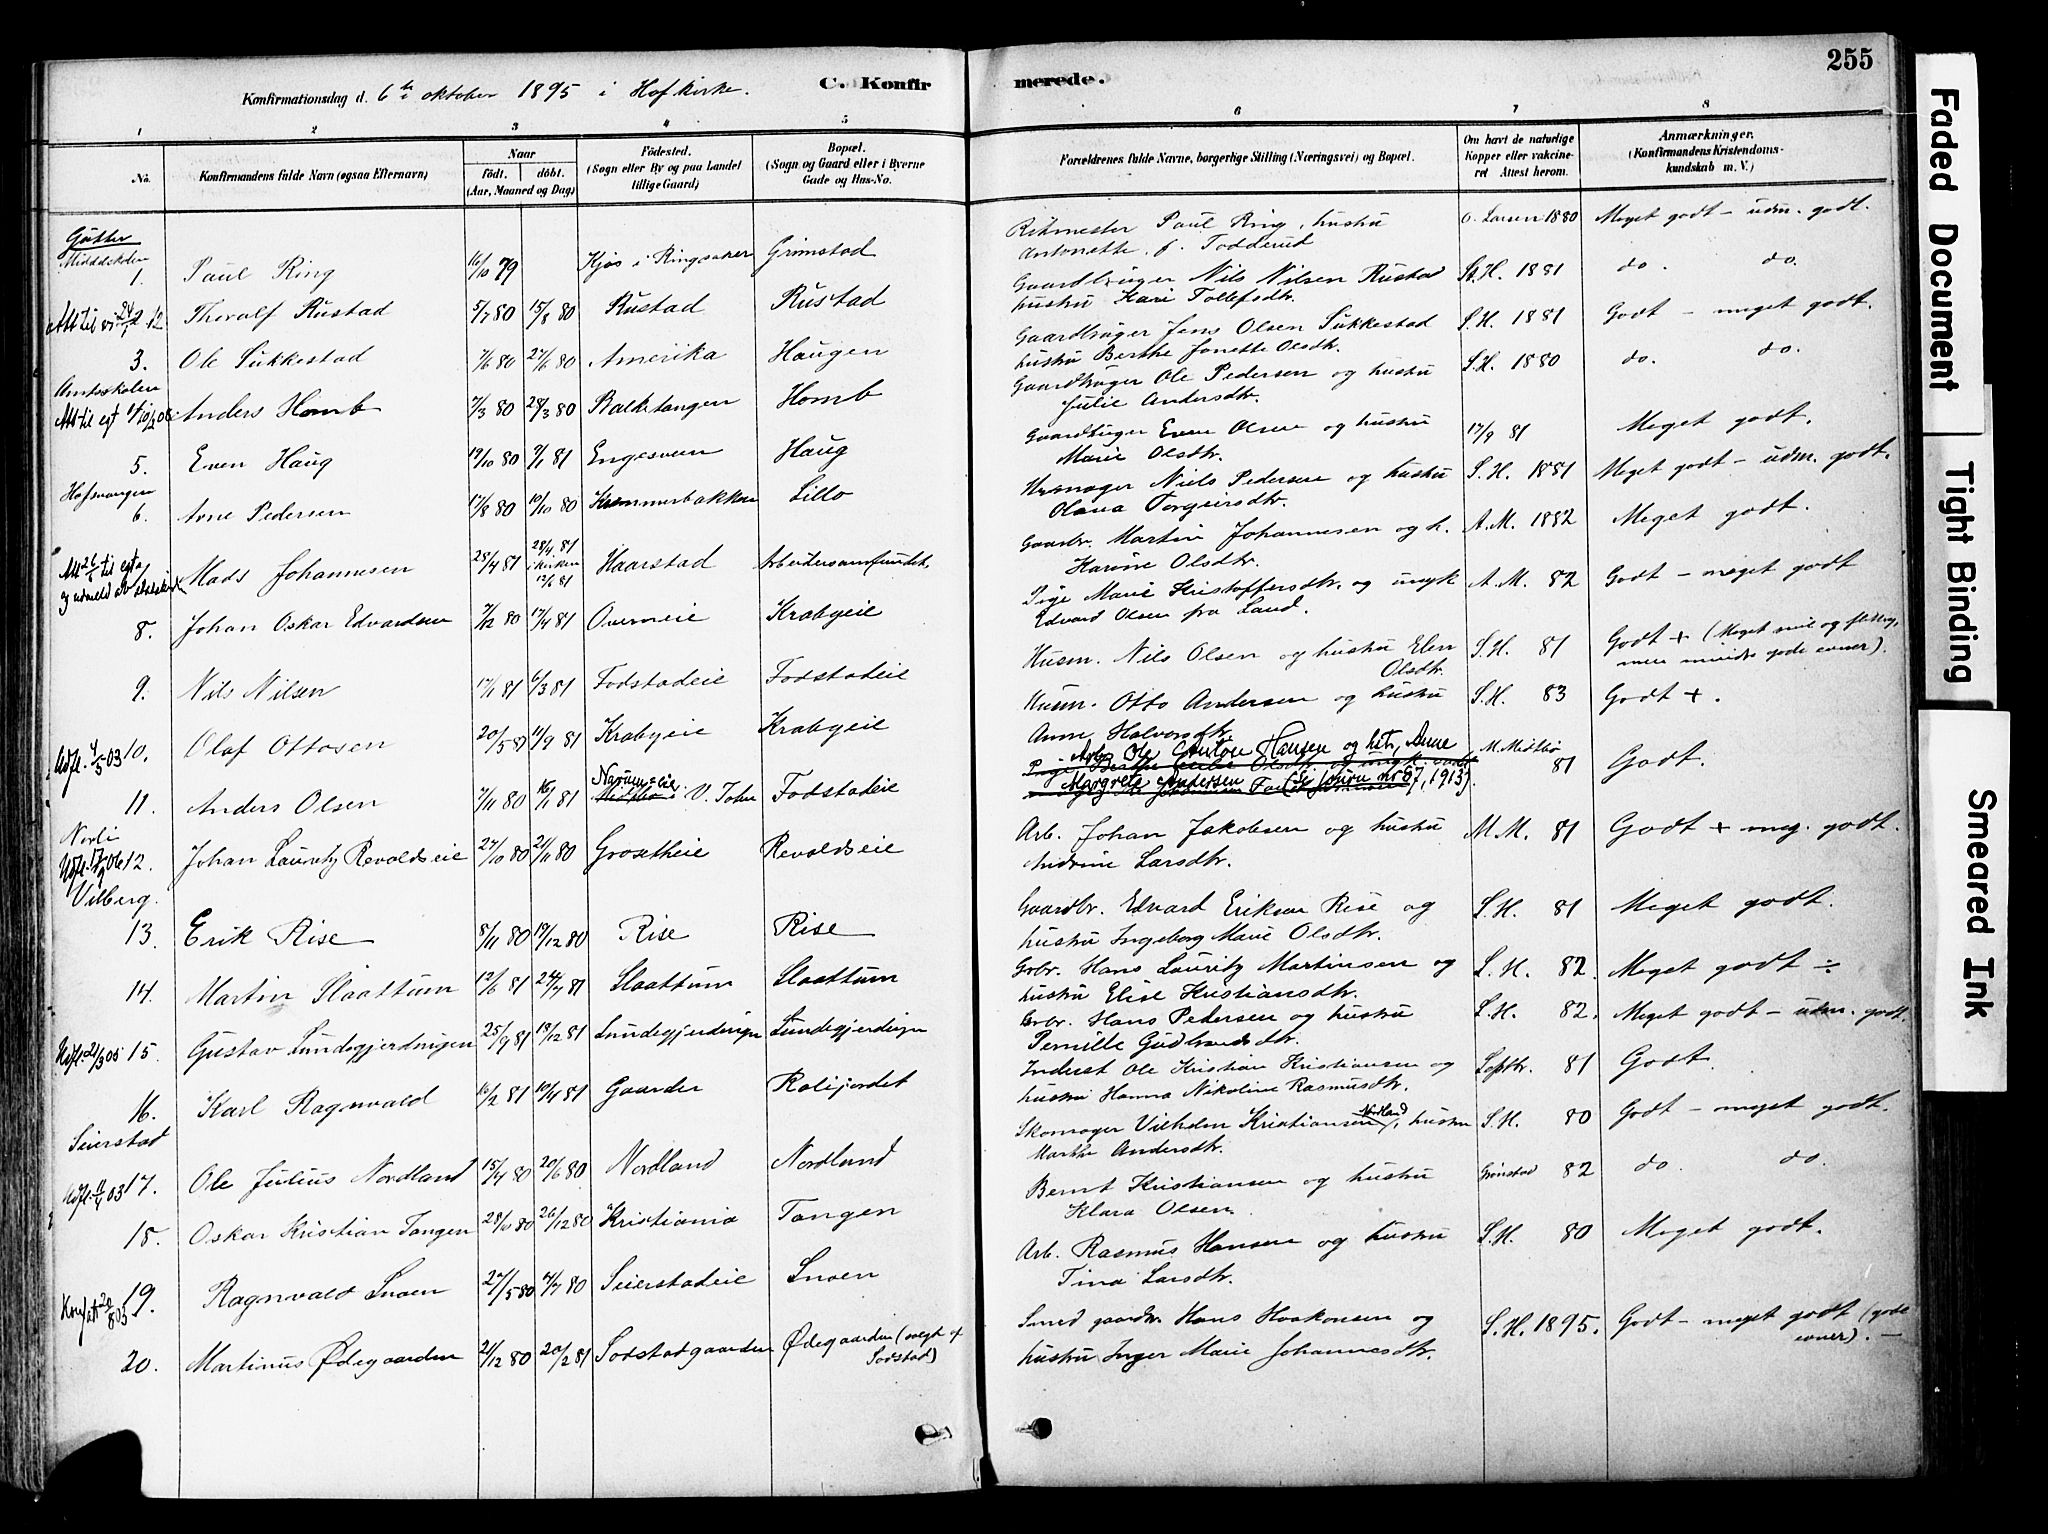 255
Konfirmationsdag d. 6te oktober 1895 i Hof kirke. C. Konfirmerede.
1 2 3 4 5 6 7 8
No. Konfirmandens fulde Navn (ogsaa Efternavn) Naar født. døbt. (Aar, Maaned og Dag) Fødested. (Sogn eller By og paa Landet tillige Gaard) Bopæl. (Sogn og Gaard eller i Byerne Gade og Hus-No.) Forældrenes fulde Navne, borgerlige Stilling (Næringsvei) og Bopæl. Om havt de naturlige Kopper eller vakcineret Attest herom. Anmærkninger. (Konfirmandens Kristendomskundskab m. V.)
Gutter
Middelskolen
1. Paul Ring 16/10 79 Kjøs i Ringsaker Grimstad Ritmester Paul Ring, hustru Antonette f. Todderud 1880 Meget godt - udm. godt.
2 Thoralf Rustad 5/7 80 15/8 80 Rustad Rustad Gaardbruger Nils Nilsen Rustad hustru Kari Tollefsdtr. S.H. 1881 do. do.
3. Ole Sukkestad 7/6 80 27/6 80 Amerika Haugen Gaardbruger Jens Olsen Sukkestad hustru Berthe Jonette Olsdtr. S.H. 1881 Godt - meget godt.
Amtsskolen
Anders Homb 7/3 80 28/3 80 Balketangen Homb Gaardbruger Ole Pedersen og hustru Julie Andersdtr. S.H. 1880 do. do.
5. Even Haug 19/10 80 9/1 81 Engesveen Haug Gaardbruger Even Olsen og hustru Marie Olsdtr. 17/9 81 Meget godt.
Hofsvangen
6. Arne Pedersen 17/8 80 10/10 80 Kremmerbakken Lillo Ursmager Niels Pedersen og hustru Olava Torgeirsdtr. S.H. 1881 Meget godt - udm. godt.
Mads Johannesen 25/4 81 28/4 81 i kirken 12/6 81 Haarstad Arbeidersamfundet. Gaardbr. Martin Johannesen og h. Karine Olsdtr. A.M. 1882 Meget godt.
8. Johan Oskar Edvardsen 7/12 80 17/4 81 Overneie Krabyeie Pige Marie Kristoffersdtr. og ungk. Edvard Olsen fra Land. A.M. 82 Godt - meget godt
9. Nils Nilsen 17/1 81 6/3 81 Fodstadeie Fodstadeie Husm. Nils Olsen og hustru Elen Olsdtr. S.H. 81 Godt + (Meget snil og flittig, men mindre gode evner).
Udfl. 4/5 03 10. Olaf Ottosen 20/5 81 11/9 81 Krabyeie Krabyeie Husm. Otto Andersen og hustru Anne Halvorsdtr. S.H. 83 Godt +.
11. Anders Olsen 7/11 80 16/1 81 V. Toten Fodstadeie Arb. Ole Anton Hansen og hstr. Anne Margrete Andersen (Se journ nr 87, 1913). 81 Godt.
Norli
Udfl. 06 12. Johan Lauritz Revoldseie 27/10 80 21/11 80 Grosetheie Revoldseie Arb. Johan Jakobsen og hustru Andrine Larsdtr. M.M. 81 Godt + meg. godt.
Vilberg.
13. Erik Rise 8/11 80 19/12 80 Rise Rise Gaardbr. Edvard Eriksen Rise og hustru Ingeborg Marie Olsdtr. S.H. 81 Meget godt.
14. Martin Slaattum 12/6 81 24/7 81 Slaattum Slaattum Grbr. Hans Lauritz Martinsen og hustru Elise Kristiansdtr. S.H. 82. Meget godt ÷
Udfl. 21/3 05 15. Gustav Lundegjerdningen 25/9 81 18/12 81 Lundegjerdingn Lundegjerdingn Grbr. Hans Pedersen og hustru Pernille Gudbrandsdtr. S.H. 82. Meget godt - udm. godt.
16. Karl Ragnvald 16/2 81 10/4 81 Gaarder Rolijordet Inderst Ole Kristian Kristiansen og hustru Hanna Nikoline Rasmusdtr. Septbr. 81 Godt.
Seierstad
Udfl. 11/4 03 17. Ole Julius Nordland 15/4 80 20/6 80 Nordland Nordland Skomager Vilhelm Kristiansen Nordland, hustru Marthe Andersdtr. S.H. 80 Godt - meget godt.
18. Oskar Kristian Tangen 28/10 80 26/12 80 Kristiania Tangen Bernt Kristiansen og hustru Klara Olsen. Grimstad 82 do. do.
19. Ragnvald Snoen 27/5 80 4/7 80 Seierstadeie Snoen Arb. Rasmus Hansen og hustru Tina Larsdtr. S.H. 80 Meget godt.
20. Martinus Ødegaarden 21/12 80 20/2 81 Sodstadgaarden Ødegaarden (solgt af Sodstad) Smed gaardbr. Hans Haakonsen og hustru Inger Marie Johannesdtr. S.H. 1895. Godt - meget godt (gode evner). -
Faded Document
Tight Binding
Smeared Ink